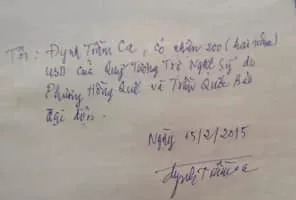 Tôi : Đynh Trầm Ca, có nhận 200 (hai trăm)
USD của Quỹ Tương Trợ Nghệ Sỹ do
Phương Hồng Quế và Trần Quốc Bảo
đại diện.
Ngày 15/2/2015
Đynh Trầm Ca